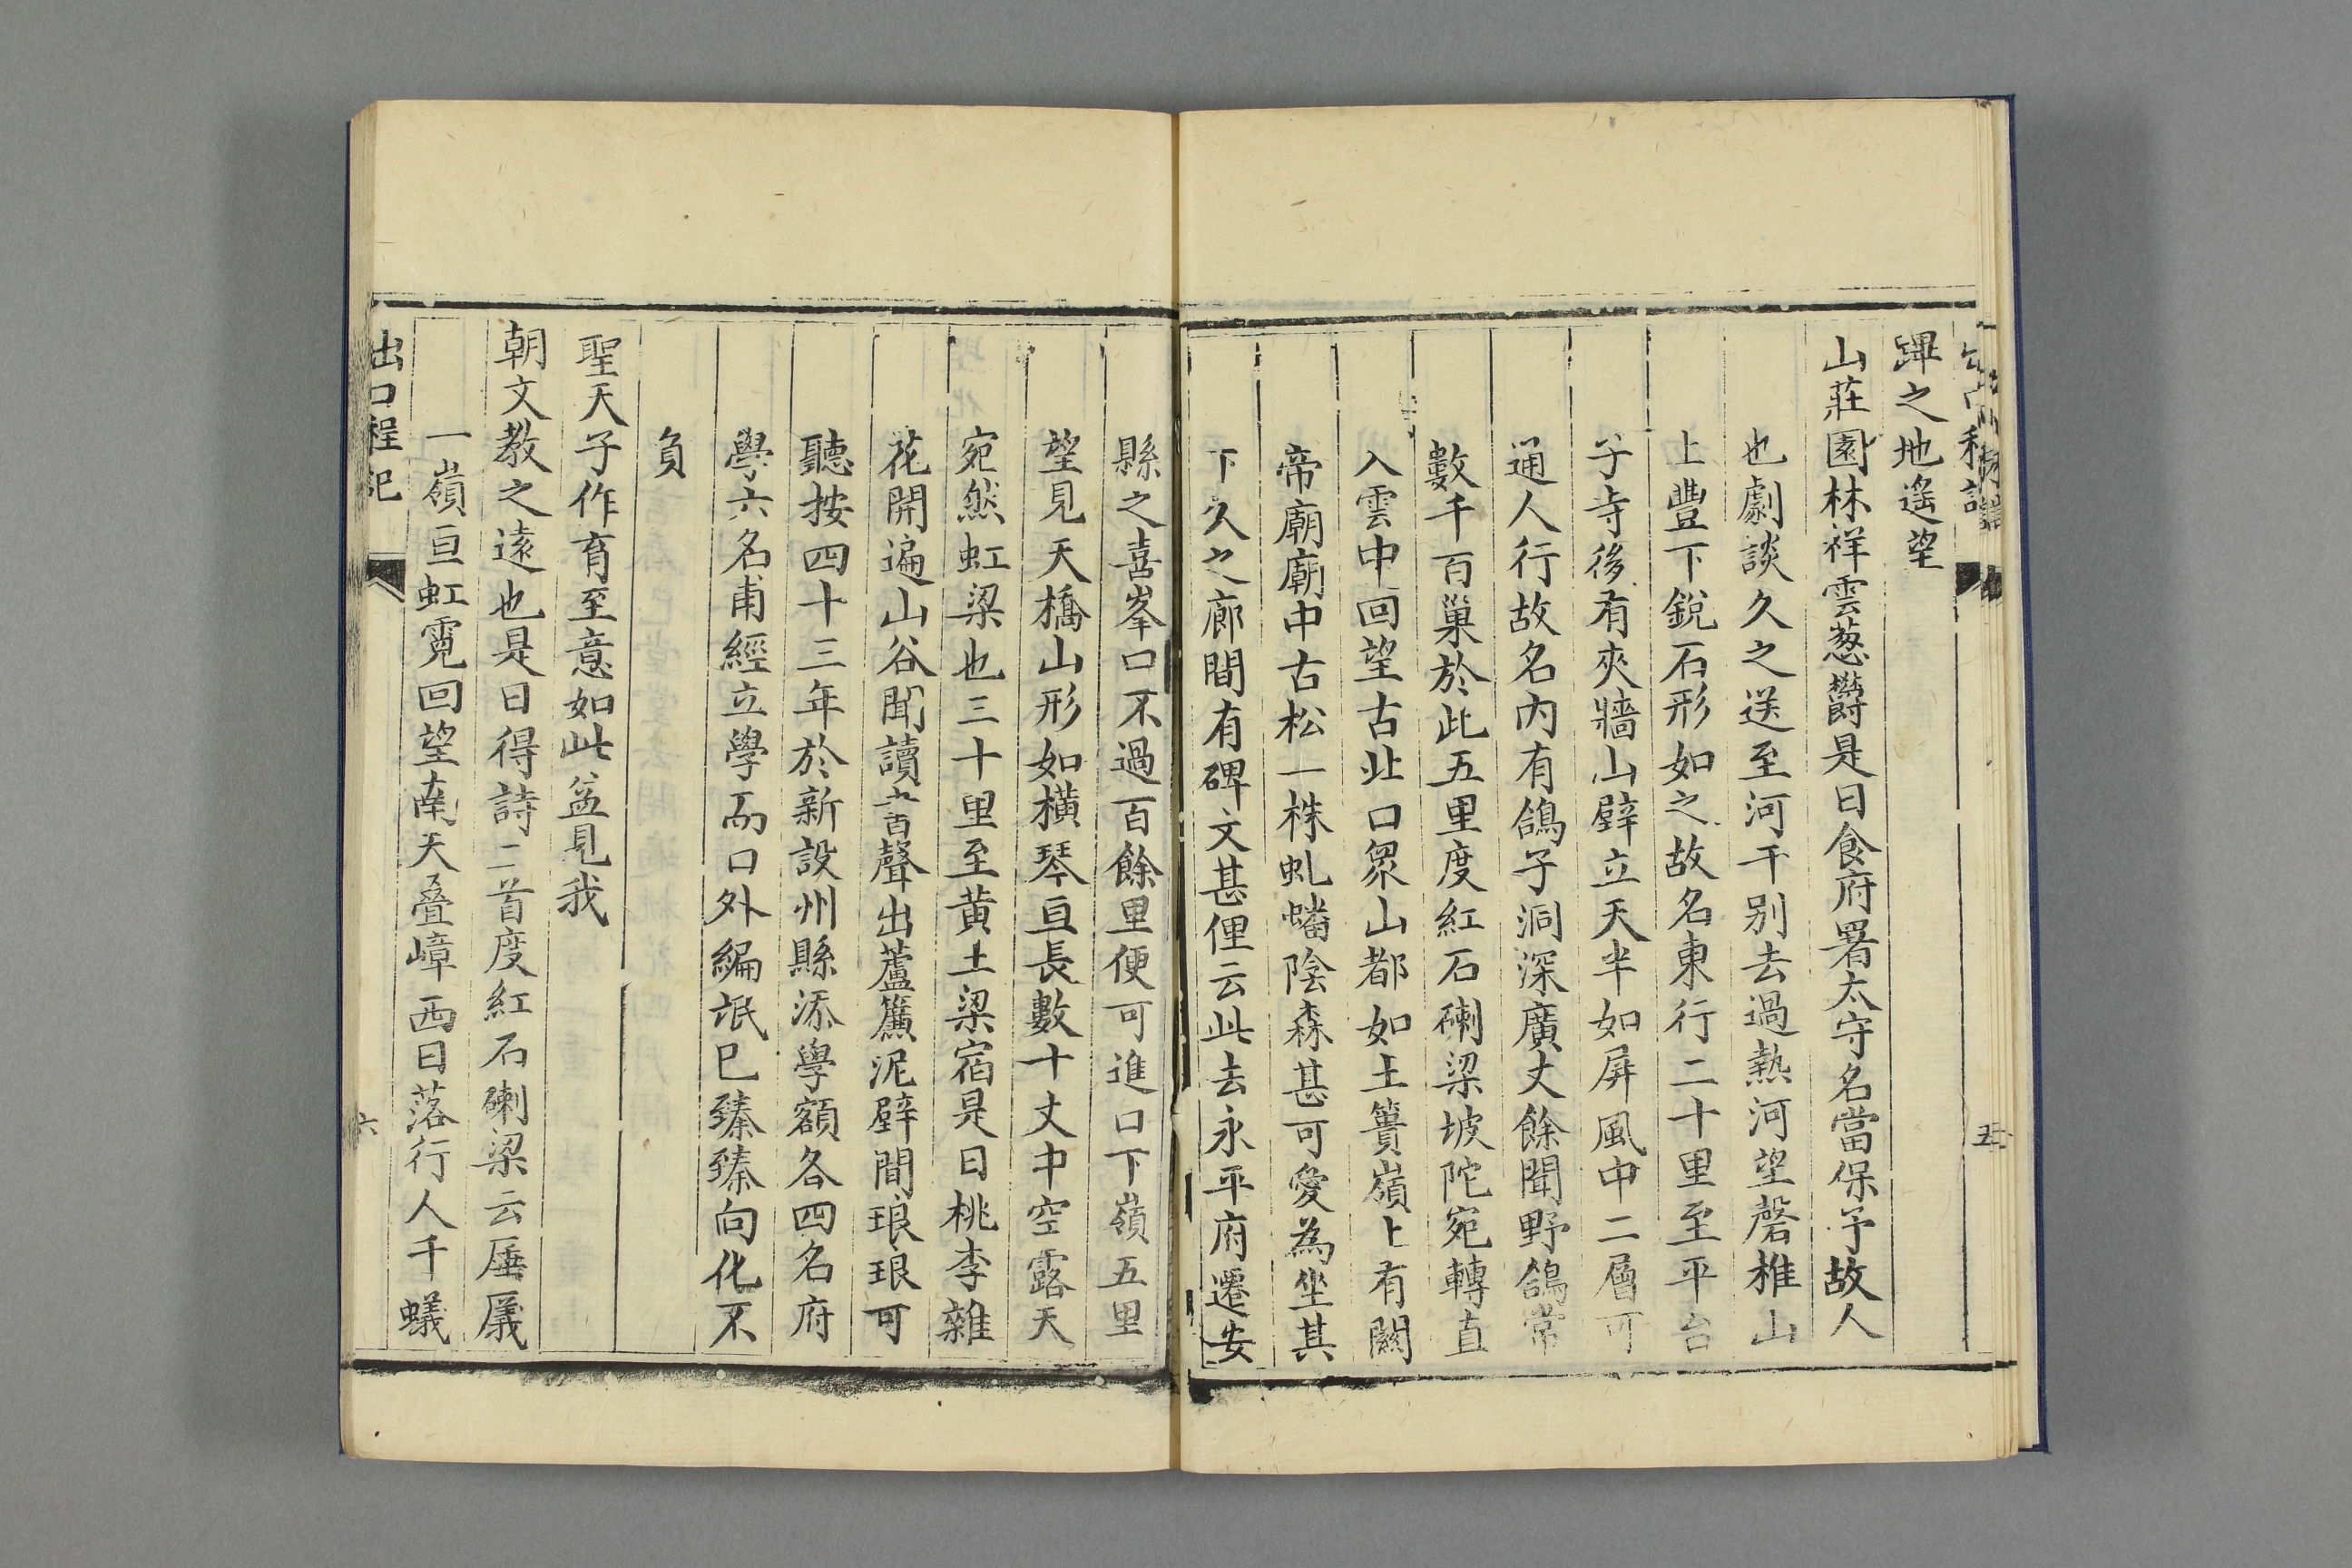 蹕之地遙望
山莊園林祥雲葱欝是日食府署太守名當保予故人
也劇談久之送至河干别去過熱河望磬椎山
上豐下銳石形如之故名東行二十里至平台
子寺後有夾牆山壁立天半如屏風中二層可
通人行故名內有鴿子洞深廣丈餘聞野鴿常
數千百巢於此五里度紅石喇梁坡陀宛轉直
入雲中回望古北口衆山都如土簣嶺上有關
帝廟廟中古松一株虬蟠陰森甚可愛為坐其
下久之廊間有碑文甚俚云此去永平府遷安
縣之喜峯口不過百餘里便可進口下嶺五里
望見天橋山形如橫琴亘長數十丈中空露天
宛然虹梁也三十里至黄土梁宿是日桃李雜
花開遍山谷聞讀書聲出蘆簾泥壁間琅琅可
聽按四十三年於新設州縣添學額各四名府
學六名甫經立學而口外編氓巳臻臻向化不
負
聖天子作育至意如此益見我
朝文教之遠也是日得詩二首度紅石喇梁云厜㕒
一嶺亘虹霓回望南天叠嶂西日落行人千蟻
出口程記
六
五